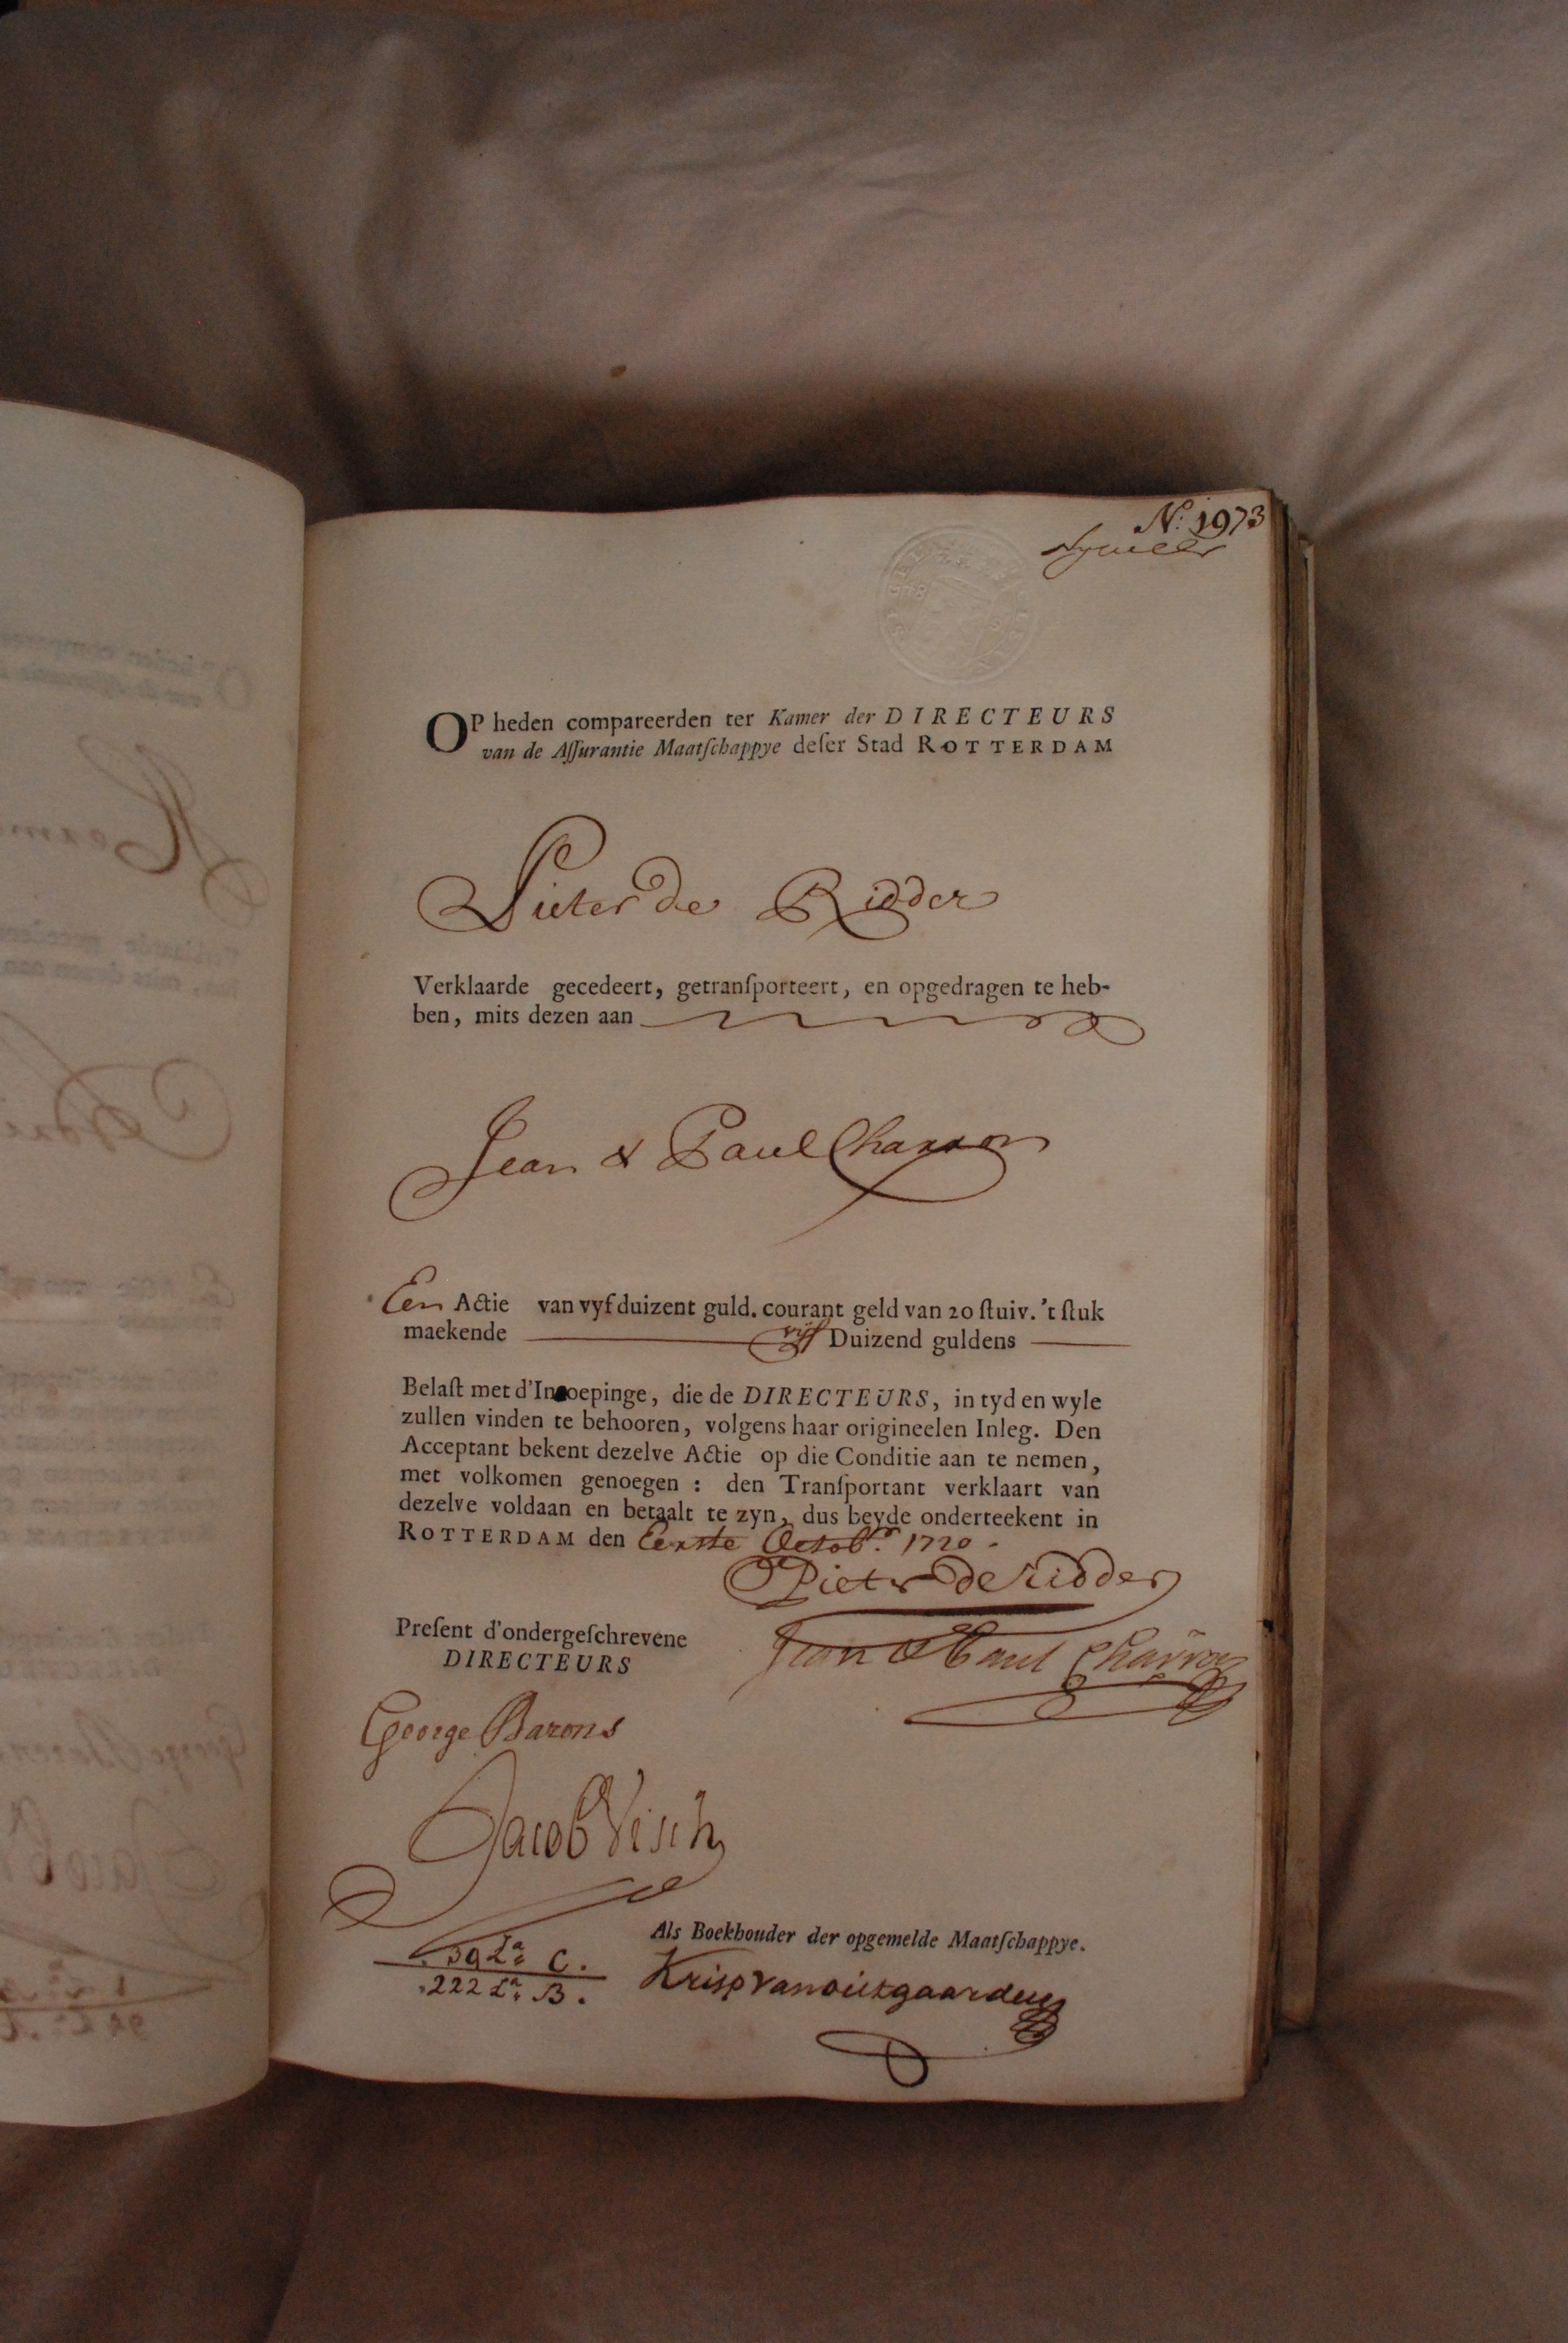 N: 1973
OP heden compareerden ter Kamer der DIRECTEURS
van de Aſſurantie Maatſchappye deſer Stad ROTTERDAM
Pieter de Ridder
Verklaarde gecedeert, getranſporteert, en opgedragen te heb-
ben, mits dezen aan
Jean & Paul Charron
Een Actie van vyf duizent guld. courant geld van 20 ſtuiv. 't ſtuk
maekende vijf Duizend guldens
Belaſt met d'Inroepinge, die de DIRECTEURS, in tyd en wyle
zullen vinden te behooren, volgens haar origineelen Inleg. Den
Acceptant bekent dezelve Actie op die Conditie aan te nemen,
met volkomen genoegen : den Tranſportant verklaart van
dezelve voldaan en betaalt te zyn, dus beyde onderteekent in
ROTTERDAM den Eerste Octobr. 1720.
Pieter de Ridder
Preſent d'ondergeſchrevene
DIRECTEURS
Jean & Paul Charron
George Barons
Jacob Visch
Als Boekhouder der opgemelde Maatſchappye.
39 La C.
222 La B.